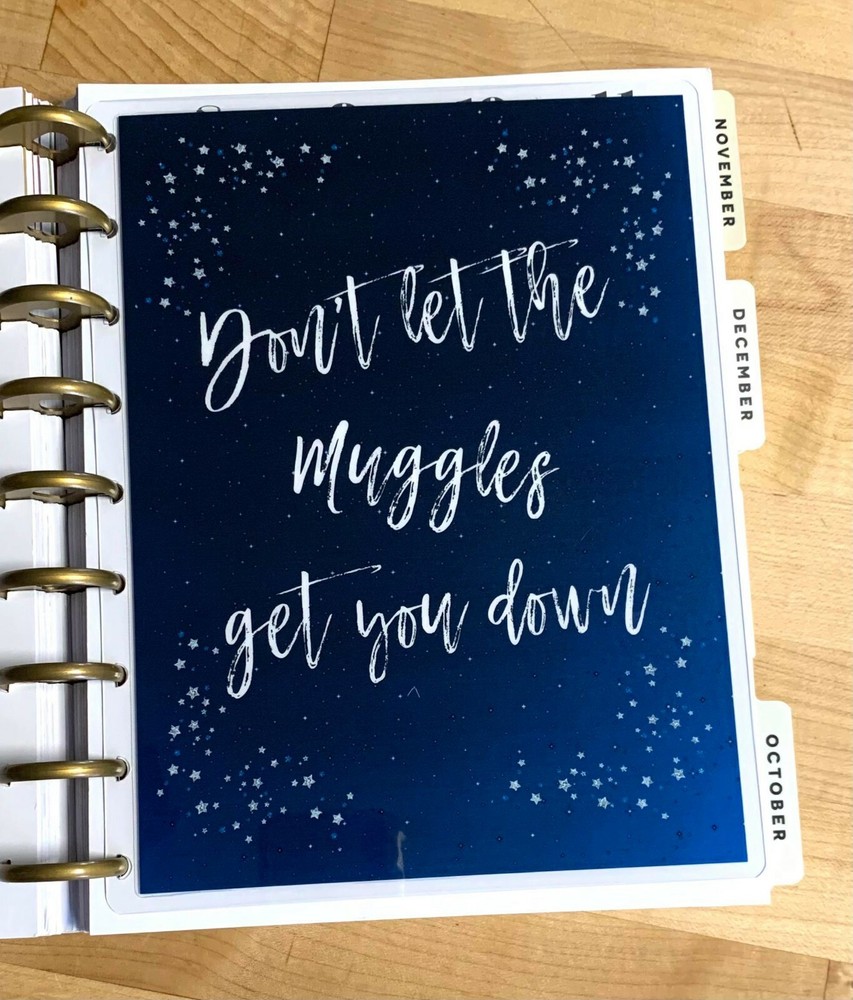 Don't let the
Muggles
get you down
NOVEMBER
DECEMBER
OCTOBER